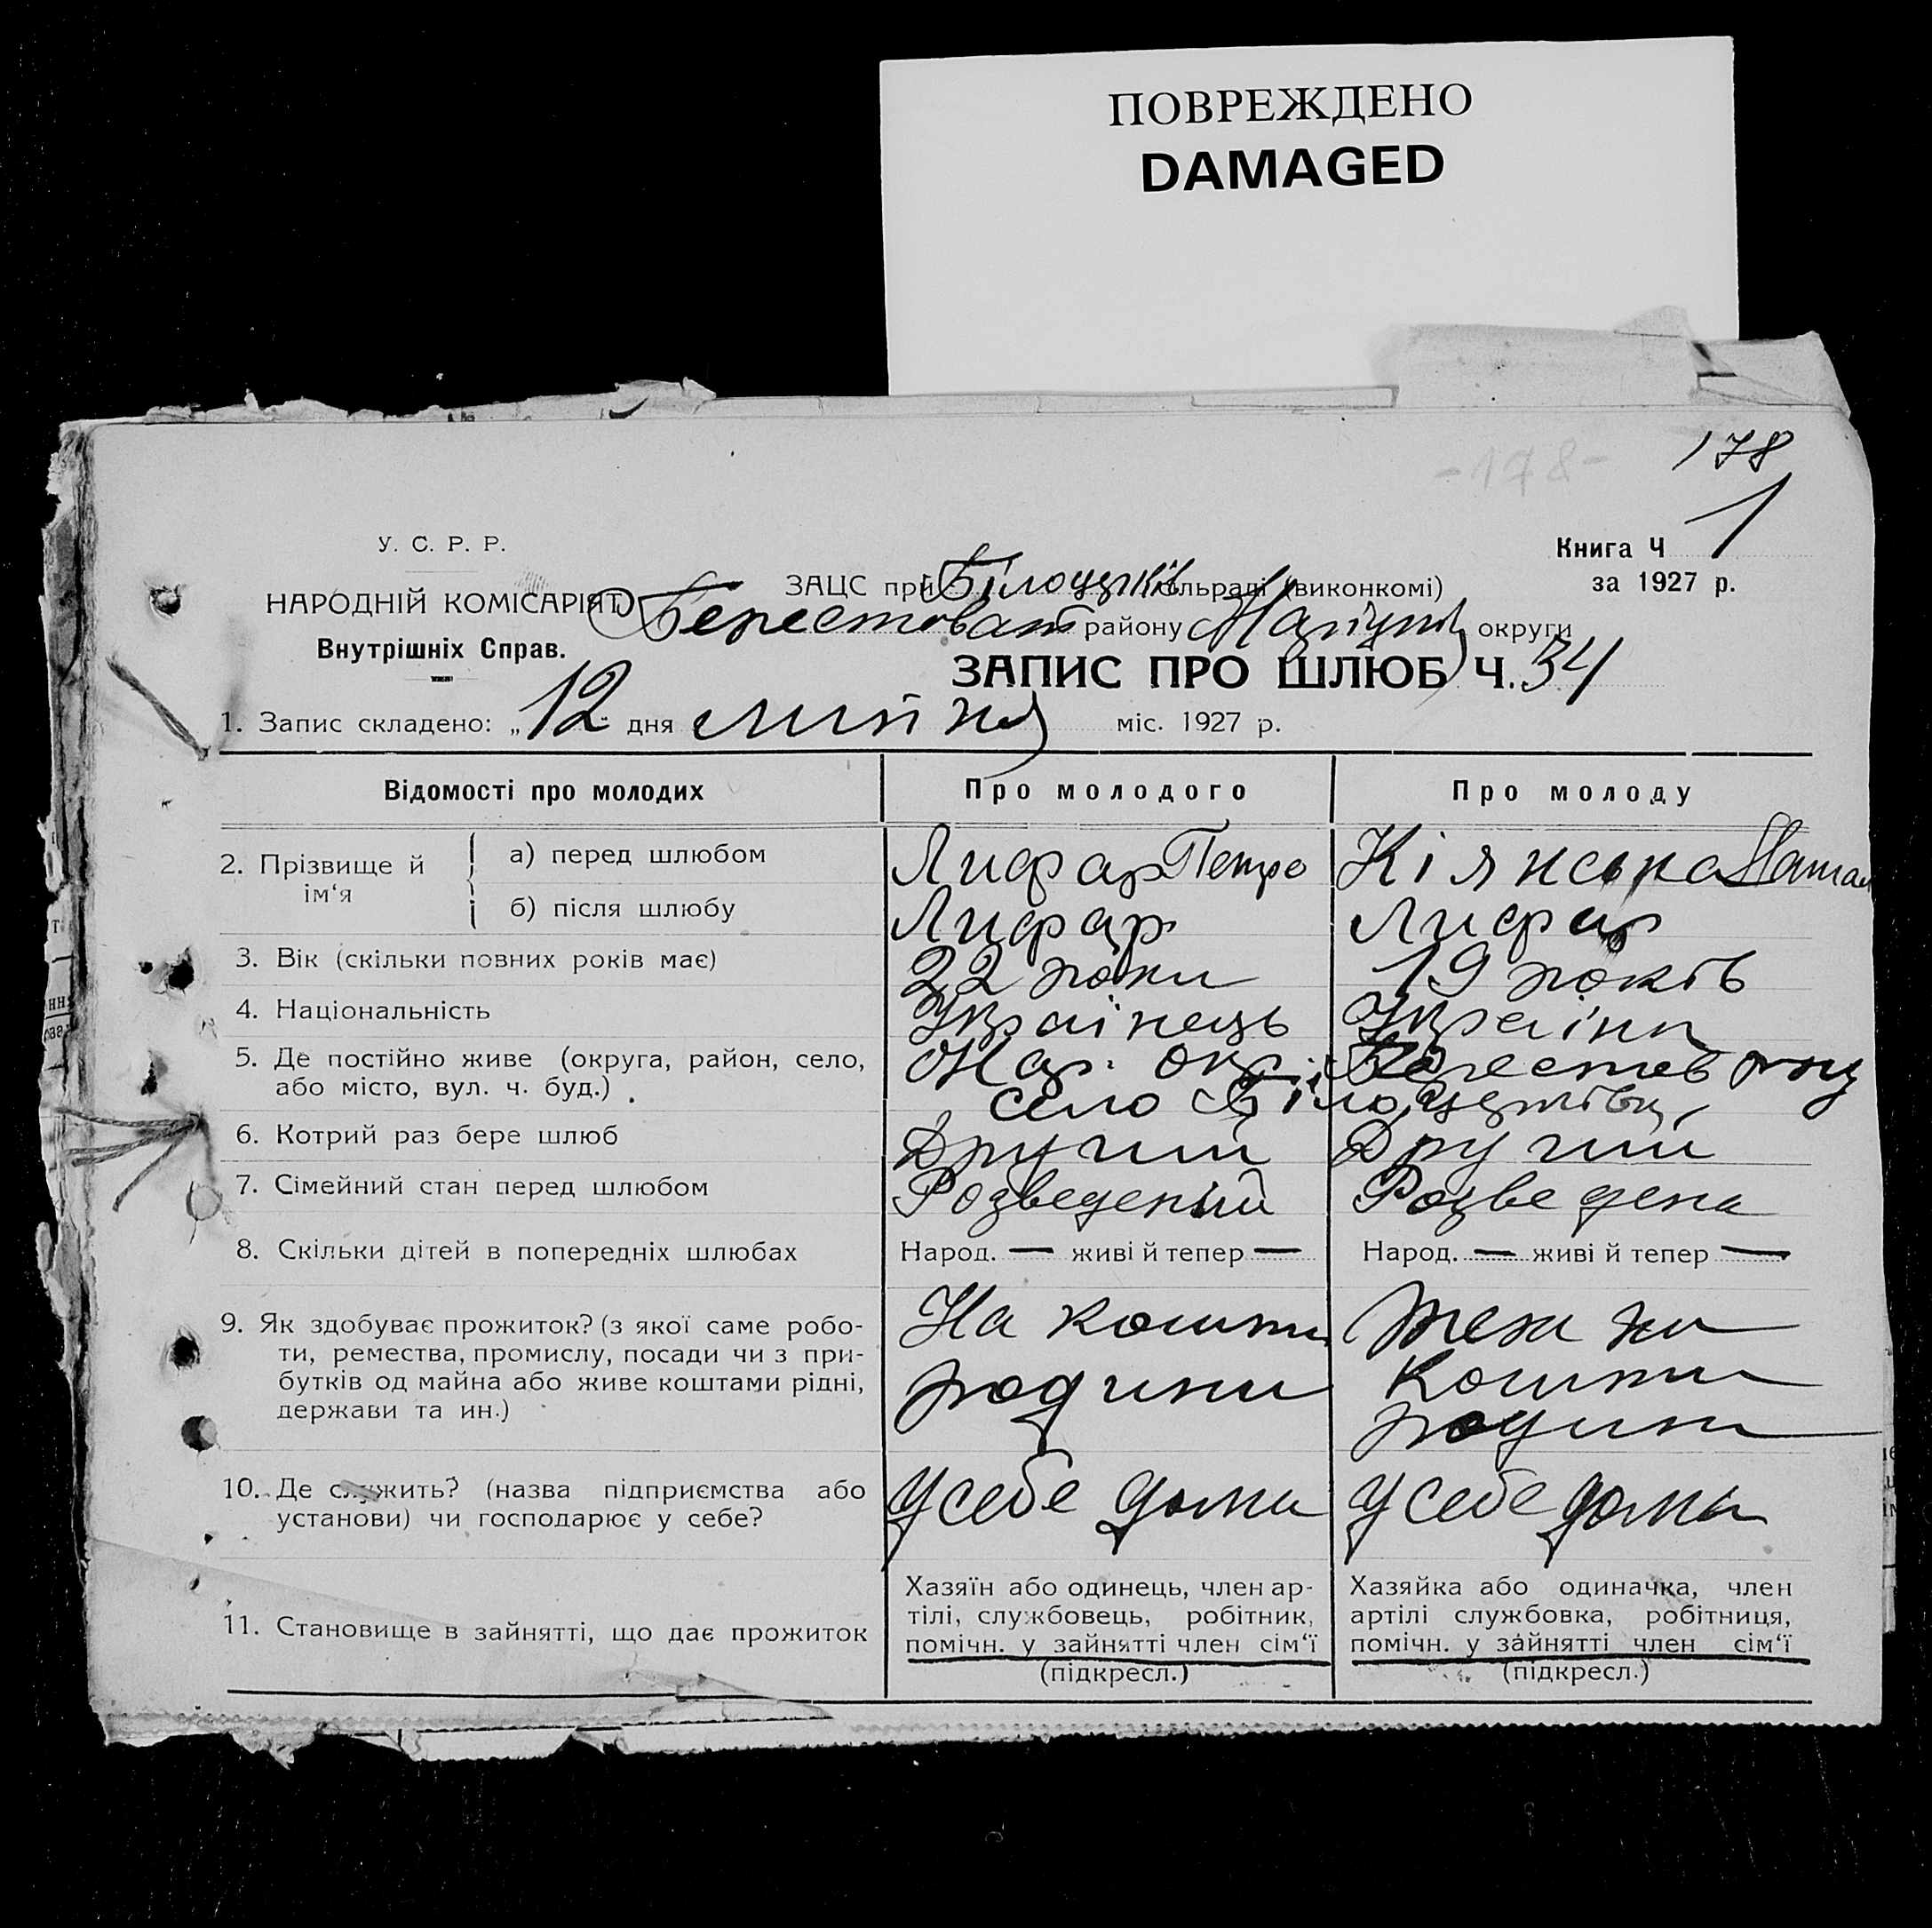 ПОВРЕЖДЕНО
DAMAGED
-178-
178
У. С. Р. Р.
НАРОДНІЙ КОМІСАРІЯТ
Внутрішніх Справ.
Книга Ч 1
за 1927 р.
ЗАЦС при сільраді (виконкомі)
району округи
ЗАПИС ПРО ШЛЮБ Ч. 34
1. Запис складено: „12 дня липня міс. 1927 р.
Відомості про молодих Про молодого Про молоду
2. Прізвище й ім‘я
а) перед шлюбом Лифар Петро Кіянська
б) після шлюбу Лифар Лифар
3. Вік (скільки повних років має) 22 роки 19 років
4. Національність Українець Українк
5. Де постійно живе (округа, район, село, Мар. окр. Берестов
або місто, вул. ч. буд.) село
6. Котрий раз бере шлюб Другий Другий
7. Сімейний стан перед шлюбом Розведений Розведена
8. Скільки дітей в попередніх шлюбах Народ. — живі й тепер — Народ. — живі й тепер —
9. Як здобуває прожиток? (з якої саме робо-
ти, ремества, промислу, посади чи з при-
бутків од майна або живе коштами рідні,
держави та ин.)
На кошти
родини
теж на
кошти
родини
10. Де служить? (назва підприємства або
установи) чи господарює у себе?
У себе дома У себе дома
11. Становище в зайнятті, що дає прожиток
Хазяїн або одинець, член ар-
тілі, службовець, робітник,
помічн. у зайнятті член сім‘ї
(підкресл.)
Хазяйка або одиначка, член
артілі службовка, робітниця,
помічн. у зайнятті член сім‘ї
(підкресл.)